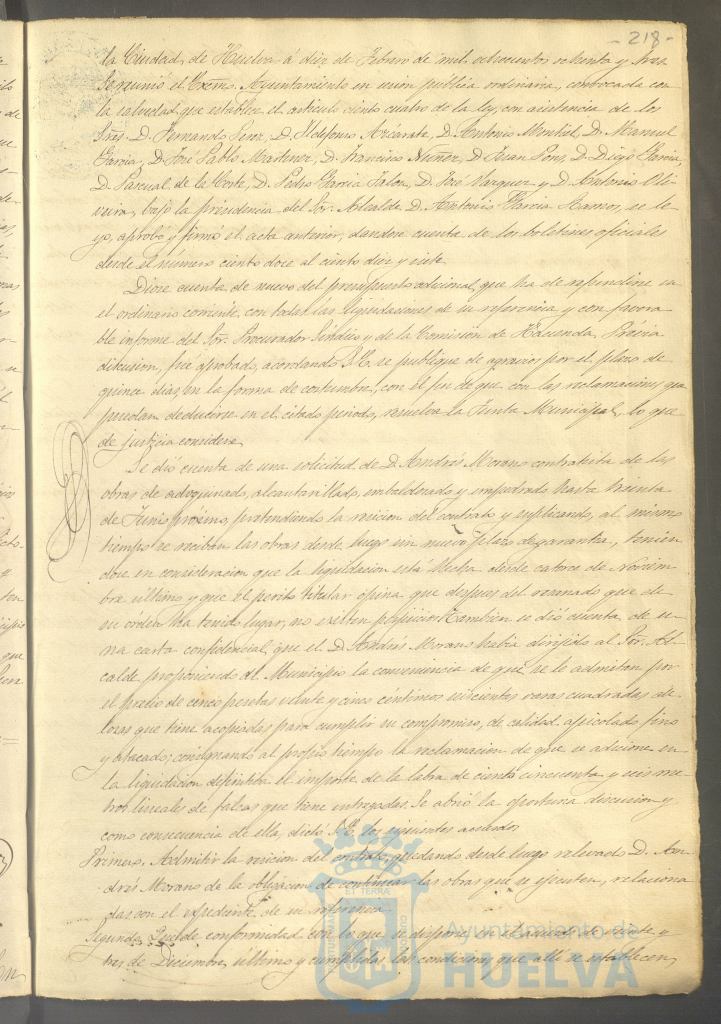 - 218 -
la Ciudad de Huelva á diez de Febrero de mil ochocientos ochenta y tres
se reunió el Excmo. Ayuntamiento en sesion publica ordinaria, convocada con
la salvedad que establece el articulo ciento cuatro de la ley, con asistencia de los
Sres. D. Fernando Perez, D. Ildefonso Azcárate, D. Antonio Montiel, D. Manuel
Garcia, D. José Pablo Martinez, D. Francisco Nuñez, D. Juan Pons, D. Diego Garcia,
D. Pascual de la Corte, D. Pedro Garcia Jalon, D. José Vazquez y D. Antonio Oli-
veira, bajo la presidencia del Sor. Alcalde D. Antonio Garcia Ramos, se le-
yo, aprobó y firmó el acta anterior, dandose cuenta de los boletines oficiales
desde el numero ciento doce al ciento diez y siete.
Diose cuenta de nuevo del presupuesto adicional, que ha de refundirse en
el ordinario corriente, con todas las liquidaciones de su referencia y con favora-
ble informe del Sor. Procurador Sindico y de la Comision de Hacienda. Prévia
discusion, fué aprobado, acordando S.E. se publique de agravios por el plazo de
quince dias, en la forma de costumbre, con el fin de que con las reclamaciones que
puedan deducirse en el citado periodo, resuelva la Junta Municipal, lo que
de justicia considere.
Se dió cuenta de una solicitud de D. Andrés Morano contratista de las
obras de adoquinado, alcantarillado, embaldosado y empedrado hasta treinta
de Junio próximo, pretendiendo la rescicion del contrato y suplicando, al mismo
tiempo se reciban las obras desde luego sin nuevo plazo de garantia, tenien-
dose en consideracion que la liquidacion está hecha desde catorce de Noviem-
bre último y que el perito titular opina que despues del reconado que de
su órden ha tenido lugar, no existen perjuicios. Tambien se dió cuenta de u-
na carta confidencial, que el D. Andrés Morano habia dirijido al Sor. Al-
calde proponiendo al Municipio la conveniencia de que se le admitan por
el precio de cinco pesetas veinte y cinco céntimos seiscientas varas cuadradas de
losas que tiene acopiadas para cumplir su compromiso, de calidad apicolado fino
y atacado; consignando al propio tiempo la reclamacion de que se adicione en
la liquidacion definitiva el importe de la labra de ciento cincuenta y seis me-
tros lineales de falcas que tiene entregadas. Se abrió la oportuna discusion y
como consecuencia de ella, dictó S.E. los siguientes acuerdos
Primero. Admitir la rescicion del contrato, quedando desde luego relevado D. An-
drés Morano de la obligacion de continuar las obras que se ejecuten, relaciona-
das con el expediente de su referencia.
Segundo. Que de conformidad con lo que se dispone en el acuerdo de veinte y
tres de Diciembre último y cumplidas las condiciones que alli se establecen,
Ayuntamiento de
HUELVA